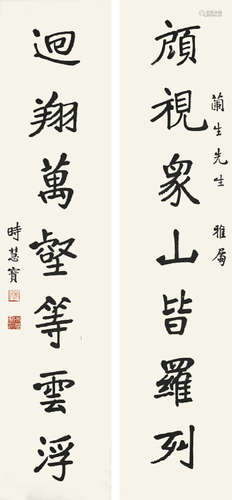 蘭生先生 雅屬
顧視眾山皆羅列
迴翔萬壑等雲浮
時慧寶